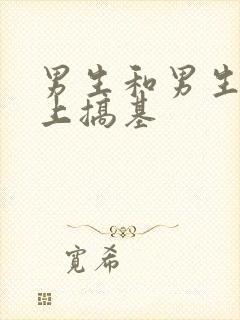 男生和男生
上搞基
宽希